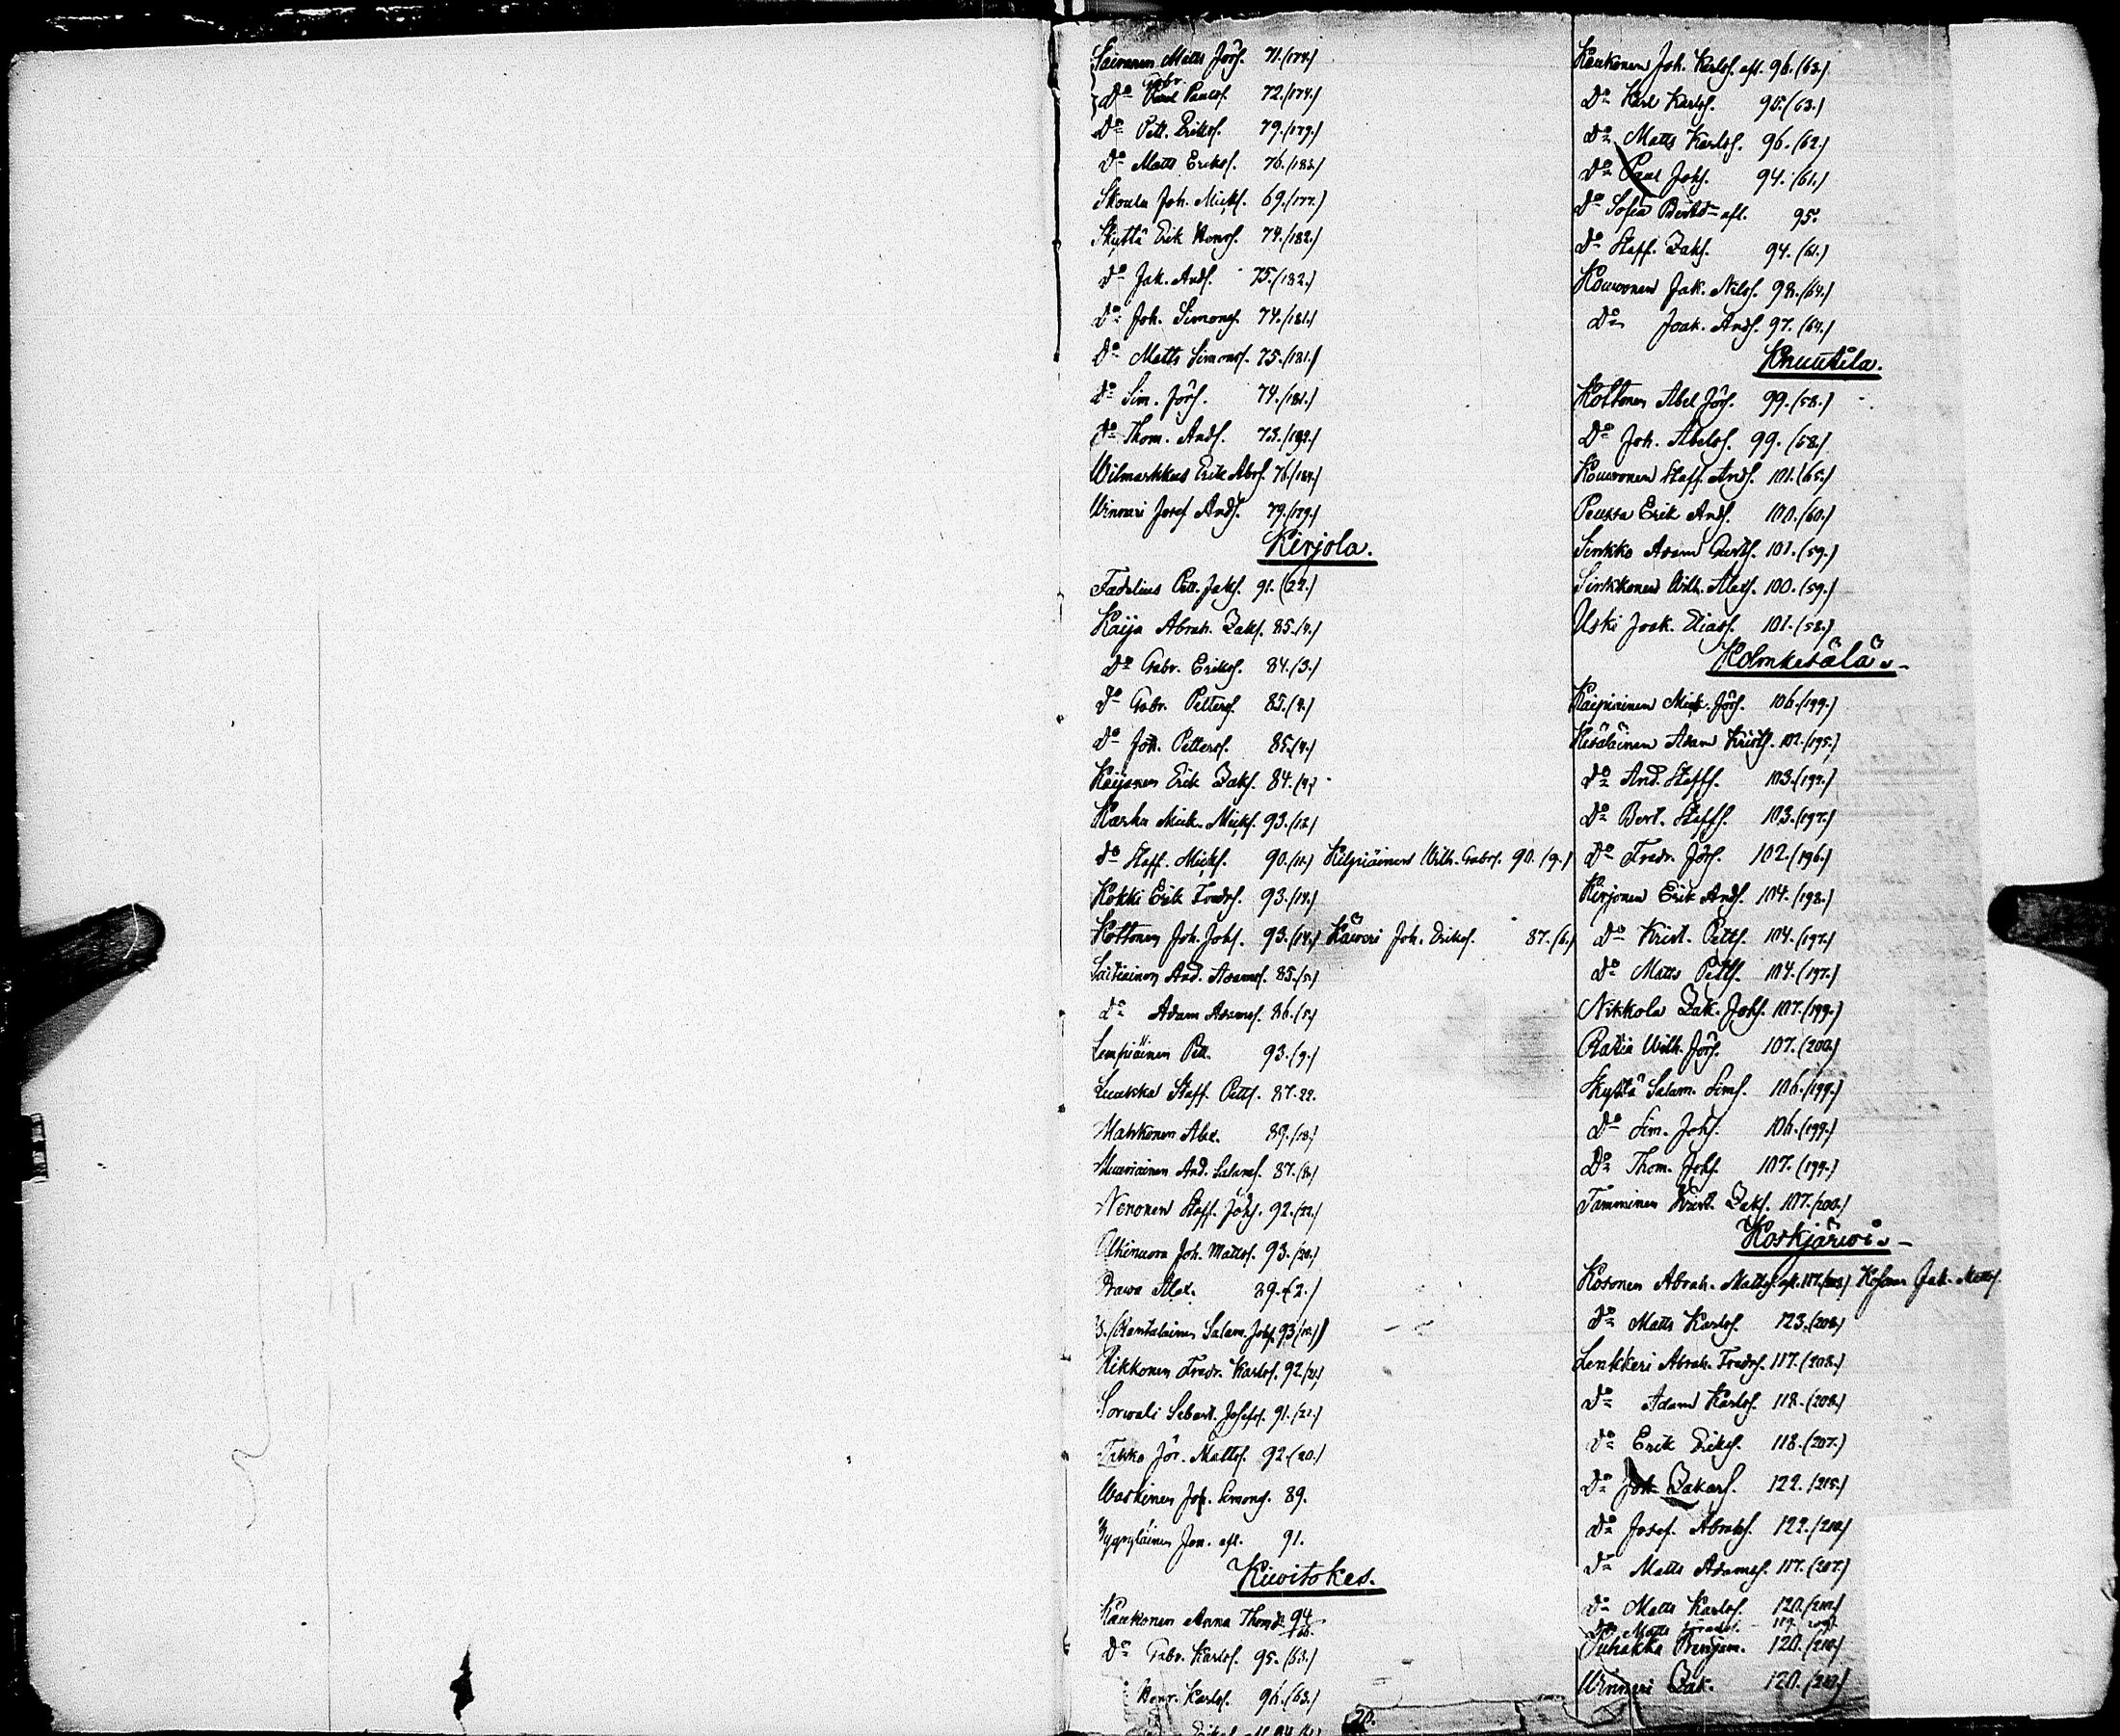 Sairanen Matts Jörs. 71.(174.)
Do Gabr. Paulss. 72.(174.)
Do Pett. Erikss. 79.(179.)
Do Matts Erikss. 76.(183.)
Skoula Joh. Micks. 69.(177.)
Skyttä Erik Honrs. 74.(182.)
Do Jak. Ands. 75.(182.)
Do Joh. Simons. 74.(181.)
Do Matts Simons. 75.(181.)
Do Sim. Jörs. 74.(181.)
Do Thom. Ands. 73.(182.)
Wilmarkkus Erik Abrs. 76.(184.)
Winnari Josef Ands. 79.(179.)
Kirjola.
Fadelius Pett. Jaks. 91.(22.)
Kaija Abrah. Zaks. 85.(4.)
Do Gabr. Erikss. 84.(3.)
Do Gabr. Petters. 85.(4.)
Do Joh. Petters. 85.(4.)
Kaijanen Erik Zaks. 84.(4.)
Karhu Mick. Micks. 93.(12.)
Do Staff. Micks. 90.(11.) Kilpiäinen Wilh. Gabrs. 90.(9.)
Kokki Erik Fredrs. 93.(14.)
Kottonen Joh. Johs. 93.(14.) Käweri Joh. Erikss. 87.(6.)
Laitiainen And. Adams. 85.(5.)
Do Adam Adams. 86.(5.)
Lempiäinen Pett. 93.(9.)
Luukka Staff. Petts. 87.22.
Mahkonen Alex. 89.(18.)
Muuriainen And. Salams. 87.(8.)
Nenonen Staff. Johs. 92.(22.)
Olkinuora Joh. Mattss. 93.(20.)
Prawa Alex. 89.(2.)
Rantalainen Salam. Johs. 93.(10.)
Rikkonen Fredr. Karlss. 92.(21.)
Sorwali Sebast. Josefs. 91.(21.)
Takko Jör. Mattss. 92.(20.)
Waskinen Joh. Simons. 89.
Jon. afl. 91.
Kiwitokas.
Kaukonen Anna Thomdr. 94
Do Gabr. Karlss. 95.(63.)
Honr. Karlss. 96.(63.)
Kaukonen Joh. Karlss. afl. 96.(63.)
Do Karl Karlss. 95.(63.)
Do Matts Karlss. 96.(62.)
Do Paul Johs. 94.(61.)
Do Sofia afl. 95.
Do Staff. Zaks. 94.(61.)
Kouwonen Jak. Nilss. 98.(64.)
Do Joak. Ands. 97.(64.)
Knuutila.
Kottonen Abel Jörs. 99.(58.)
Do Joh. Abelss. 99.(58.)
Kouwonen Staff. Ands. 101.(65.)
Peussa Erik Ands. 100.(60.)
Sinkko Adam 101.(59.)
Sinkkonen Wilh. 100.(59.)
Uski Joak. Eliass. 101.(58.)
Kolmkesälä.
Kaipiainen Mick. Jörs. 106.(199.)
Kesäläinen Adam Krists. 102.(195.)
Do And. Staffs. 103.(197.)
Do Bert. Staffs. 103.(197.)
Do Fredr. Jörs. 102.(196.)
Kirjonen Erik Ands. 104.(198.)
Do Krist. Petts. 104.(197.)
Do Matts Petts. 104.(197.)
Nikkola Zak. Johs. 107.(199.)
Ratia Wilh. Jörs. 107.(200.)
Skyttä Salam. Sims. 106.(199.)
Do Sim. Johs. 106.(199.)
Do Thom. Johs. 107.(199.)
Tamminen Krist. Zaks. 107.(200.)
Koskjärwi.
Kosonen Abrah. Mattss. afl. 117. Kosonen Jak. Mattss.
Do Matts Karlss. 123.(208.)
Lenkkeri Abrah. Fredrs. 117.(208.)
Do Adam Karlss. 118.(208.)
Do Erik Erikss. 118.(207.)
Do Joh. Zakars. 122.(215.)
Do Josef. Abrahs. 122.(210.)
Do Matts Adamss. 117.(207.)
Do Matts Karlss. 120.(210.)
Do Matts 119.
Puhakka Benjam. 120.(210.)
Winnari Zak. 120.(210.)